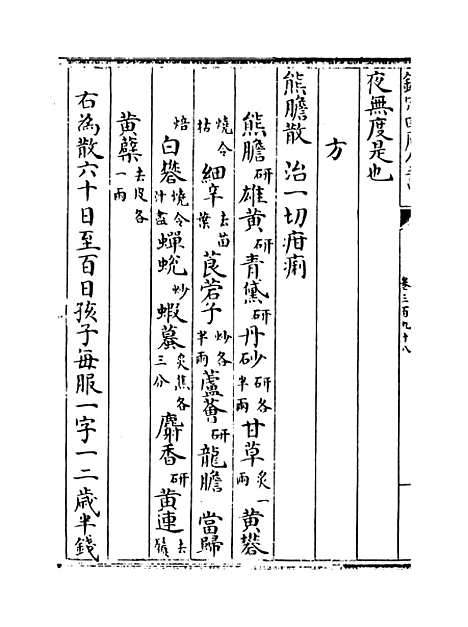 卷三百九十八
夜無度是也
方
熊膽散 治一切疳痢
熊膽研雄黃研青黛研丹砂研各半兩甘草炙一兩黃礬
燒令枯細辛去苗葉莨菪子炒各半兩蘆薈研龍膽 當歸
焙白礬燒令汁盡蟬蛻炒蝦蟇炙焦各三分麝香研黃連去鬚
黃蘗去皮各一兩
右為散六十日至百日孩子每服一字一二歲半錢